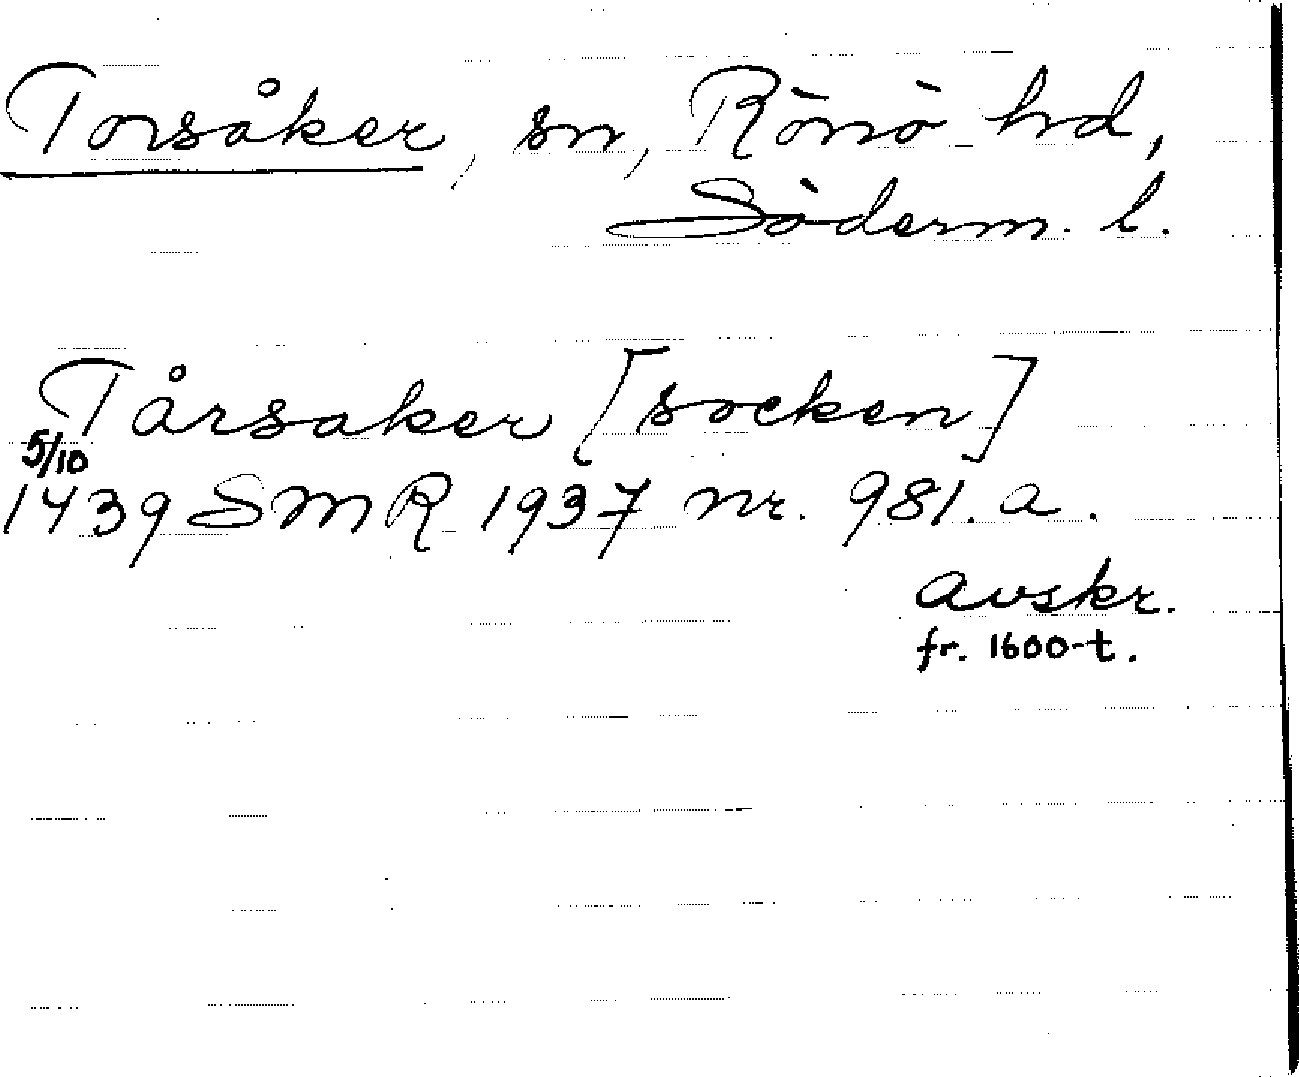 Torsåker, sn, Rönö hd,
Söderm. l.
Tårsaker [socken]
5/10
1439 SMR 1937 nr. 981. a.
avskr.
fr. 1600-t.